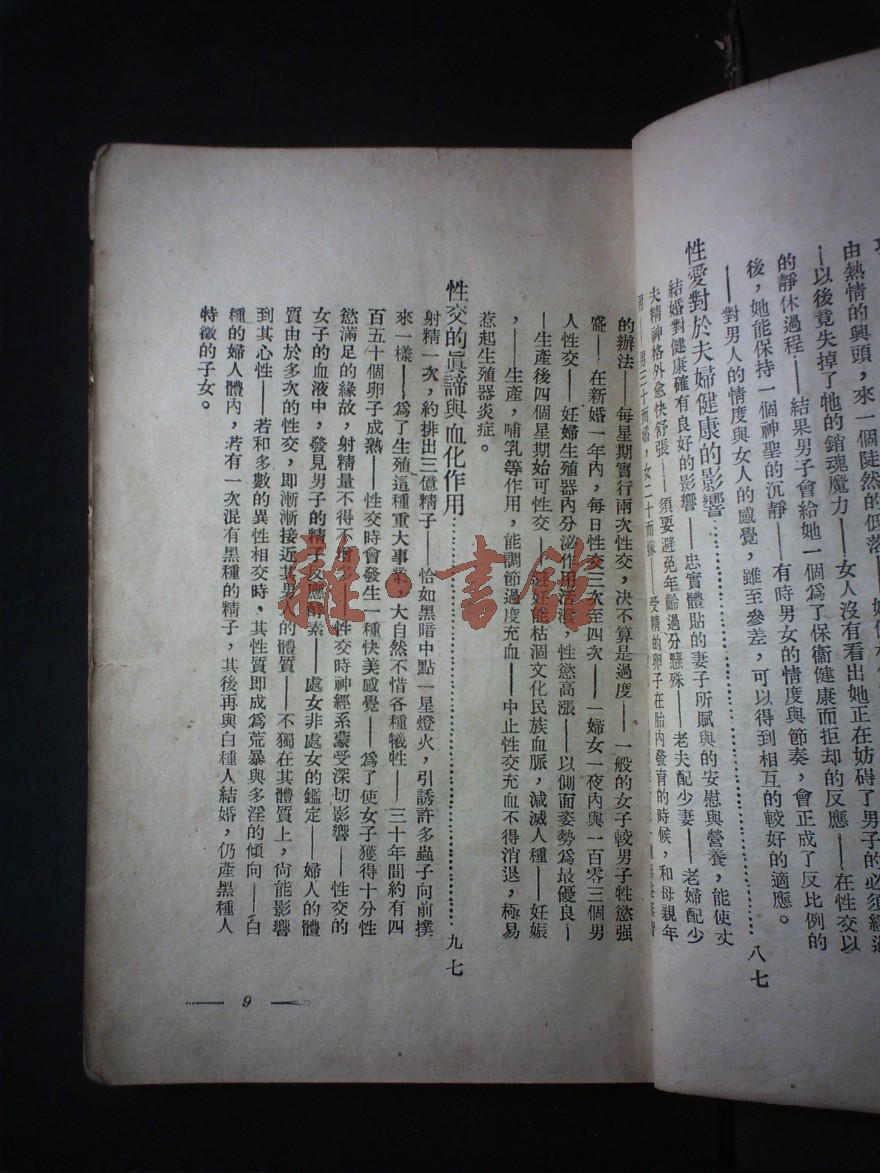 由熱情的興頭，來一個陡然的低落
—以後竟失掉了牠的銷魂魔力——女人沒有看出她正在妨碍了男子的必須經過
的靜休過程——結果男子會給她一個爲了保衞健康而拒却的反應——在性交以
後，她能保持一個神聖的沉靜——有時男女的情度與節奏，會正成了反比例的
——對男人的情度與女人的感覺，雖至參差，可以得到相互的較好的適應。
性愛對於夫婦健康的影響…………………………八七
結婚對健康確有良好的影響——忠實體貼的妻子所賦與的安慰與營養，能使丈
夫精神格外愈快舒張——須要避免年齡過分懸殊——老夫配少妻——老婦配少
男——男三十而婚，女二十而嫁——受精的卵子在胎內發育的時候，和母親年
的辦法——每星期實行兩次性交，决不算是過度——一般的女子較男子性慾强
盛——在新婚一年內，每日性交三次至四次——一婦女一夜內與一百零三個男
人性交——妊婦生殖器內分泌作用活潑，性慾高漲——以側面姿勢爲最優良—
—生產後四個星期始可性交——能枯涸文化民族血脈，減滅人種——妊娠
，——生產，哺乳等作用，能調節過度充血——中止性交充血不得消退，極易
惹起生殖器炎症。
性交的眞諦與血化作用…………………………九七
射精一次，約排出三億精子——恰如黑暗中點一星燈火，引誘許多蟲子向前撲
來一樣——爲了生殖這種重大事業，大自然不惜各種犧牲——三十年間約有四
百五十個卵子成熟——性交時會發生一種快美感覺——爲了使女子獲得十分性
慾滿足的緣故，射精量不得不增多——性交時神經系蒙受深切影響——性交的
女子的血液中，發見男子的精子反應酵素——處女非處女的鑑定——婦人的體
質由於多次的性交，即漸漸接近其男人的體質——不獨在其體質上，尙能影響
到其心性——若和多數的異性相交時，其性質即成爲荒暴與多淫的傾向——白
種的婦人體內，若有一次混有黑種的精子，其後再與白種人結婚，仍產黑種人
特徵的子女。
9
雜·書館